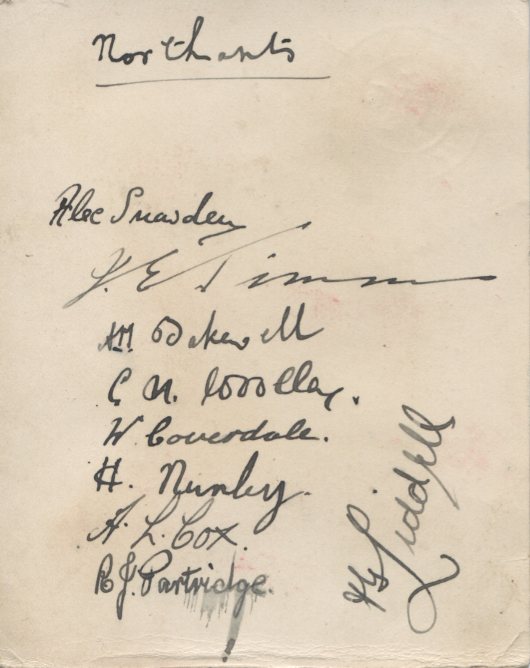 Northants
Alec Snowden
J. E. Timms
A H Bakewell
C N. Woolley.
W. Coverdale.
H. Nunley.
A. L. Cox.
R J. Partridge.
A G Liddell